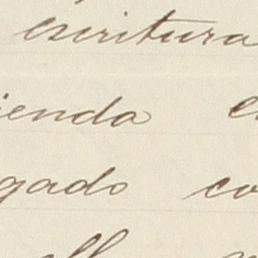 escritura
ienda
gado co